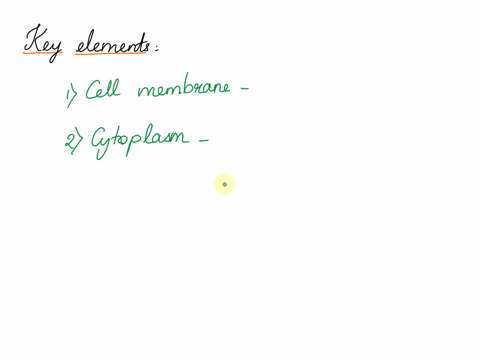 Key elements:
1) Cell membrane -
2) Cytoplasm -